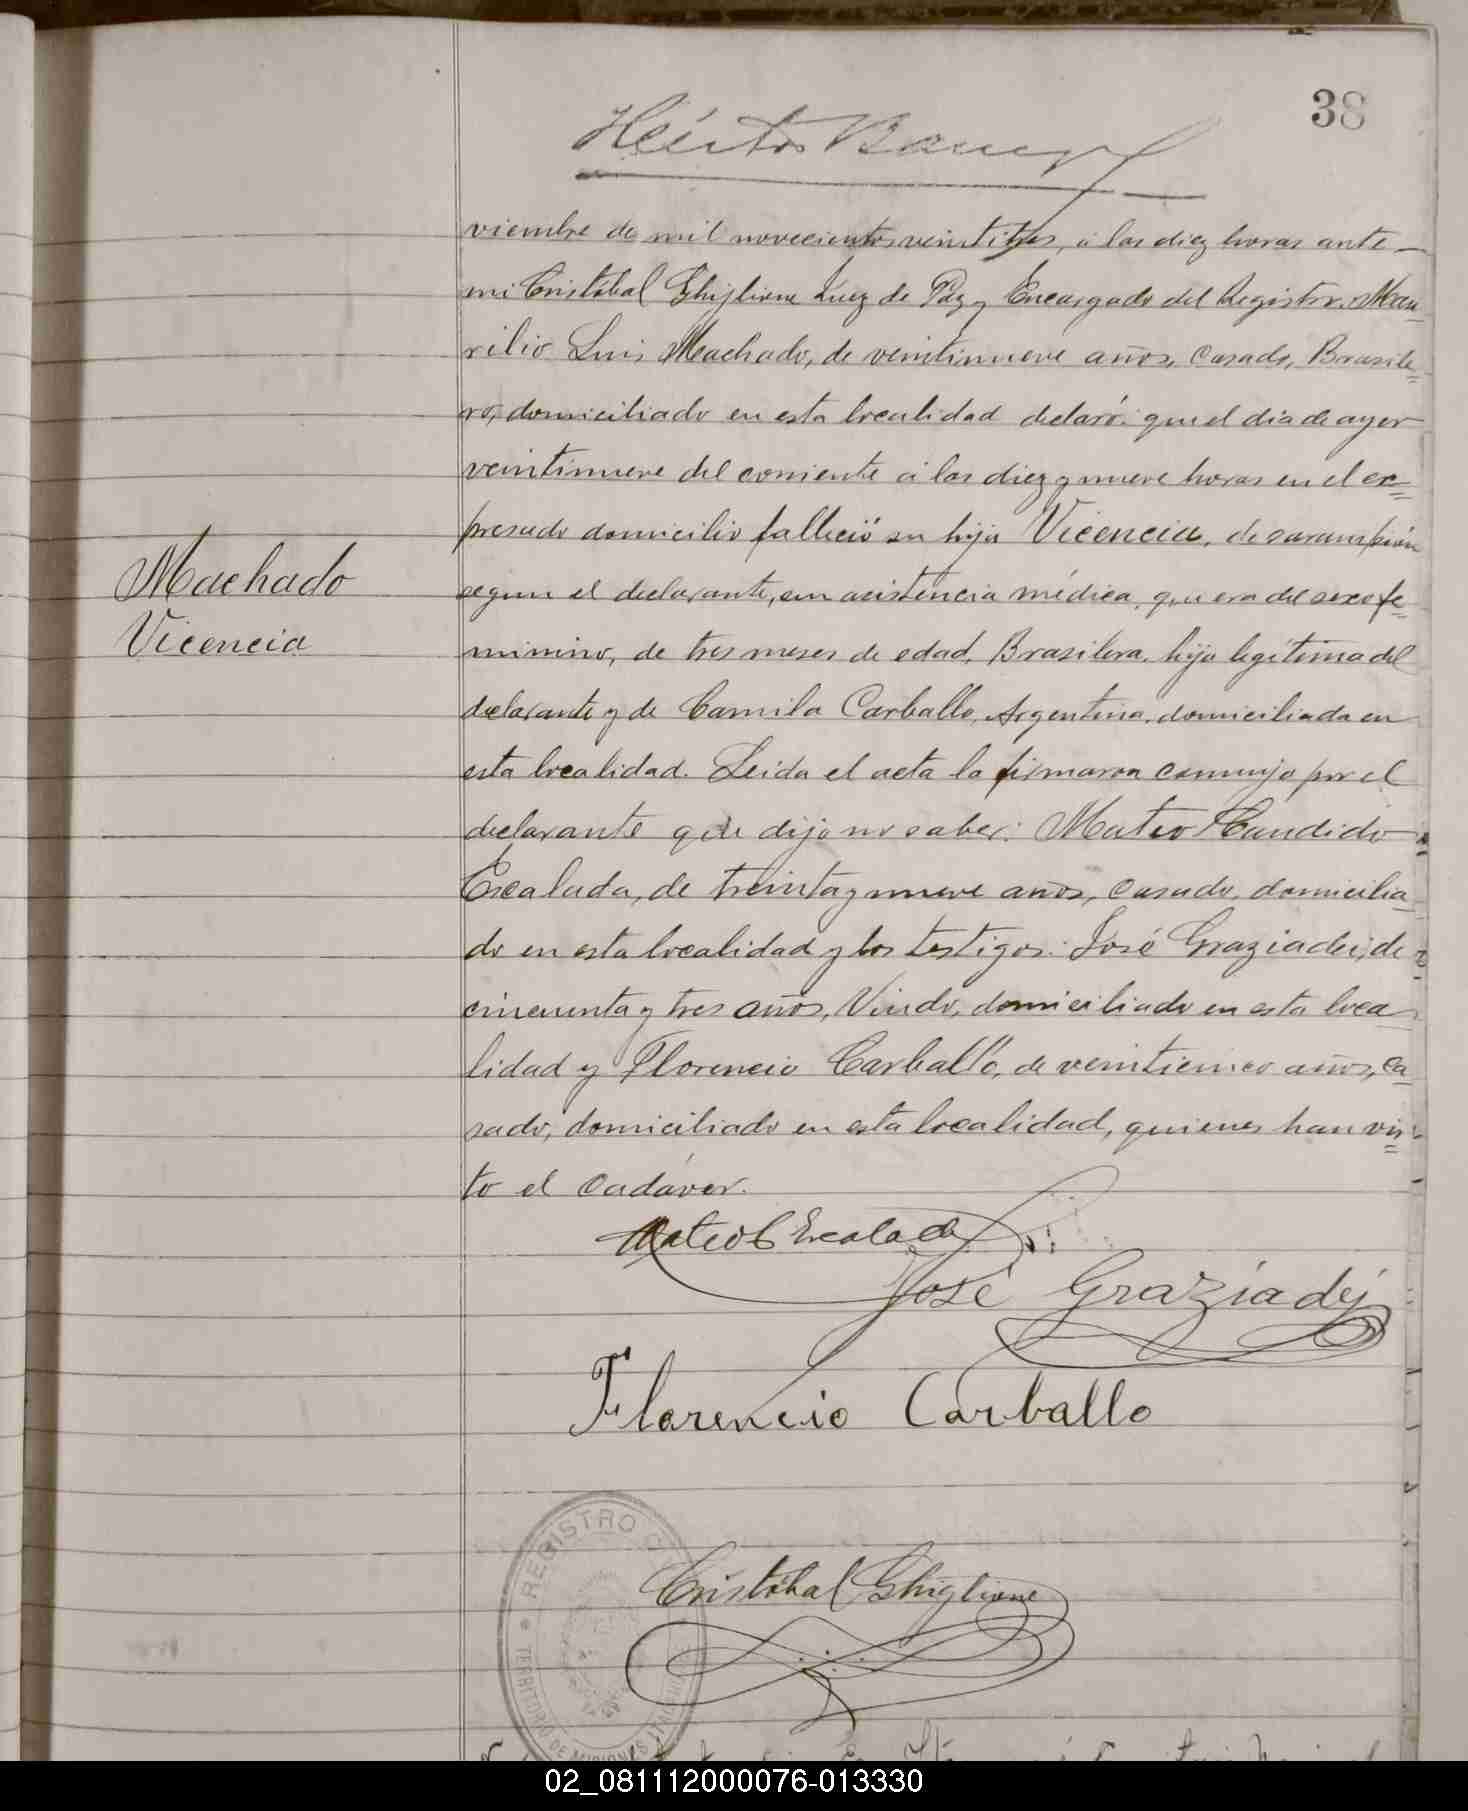 38
Héctor
viembre de mil novecientos veintitres, á las diez horas ante
mi Cristóbal Ghiglione Juez de Paz y Encargado del Registro. Mau
rilio Luis Machado, de veintinueve años, casado, Brasile=
ro, domiciliado en esta localidad declaró: que el dia de ayer
veintinueve del corriente á las diez y nueve horas en el ex=
presado domicilio falleció su hija Vicencia, de sarampión
segun el declarante, sin asistencia médica, que era del sexo fe=
minino, de tres meses de edad, Brasilera, hija legitima del
declarante y de Camila Carballo, Argentina, domiciliada en
esta localidad. Leida el acta la firmaron conmigo por el
declarante que dijo no saber: Mateo Candido
Escalada, de treinta y nueve años, casado, domicilia
do en esta localidad y los testigos: José Graziadei, de
cincuenta y tres años, Viudo, domiciliado en esta loca
lidad y Florencio Carballo, de veinticinco años, ca
sado, domiciliado en esta localidad, quienes han vis=
to el cadáver.
Machado
Vicencia
Mateo C Escalada
José Graziadei
Florencio Carballo
Cristóbal Ghiglione
REGISTRO
TERRITORIO DE MISIONES
02_081112000076-013330